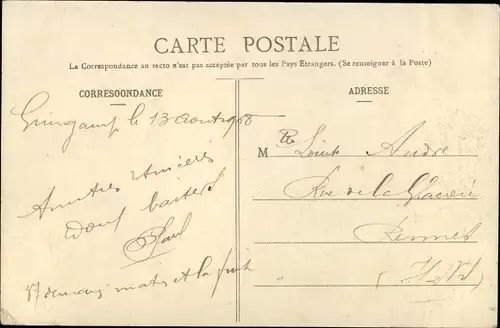 CARTE POSTALE
La Correspondance au recto n'est pas acceptée par tous les Pays Etrangers. (Se renseigner à la Poste)
CORRESOONDANCE
Guingamp le 13 Août 1908
Amitiés sincères
doux baisers
Paul
ADRESSE
M
André
Rue de la
Rennes
(I & V)